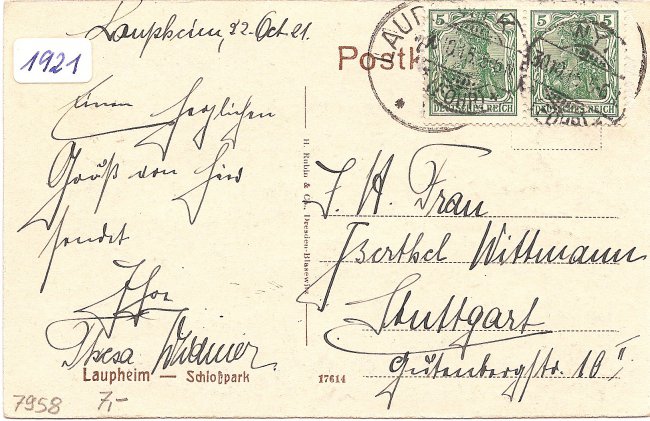 Laupheim, 22. Oct. 21.
1921
Postk
5 5
DEUTSCHES REICH DEUTSCHES REICH
Einen herzlichen
Gruß von hier
sendet
Ihre
Thesa Widmer.
H. Rubin & Co., Dresden-Blasewitz
I. H. Frau
Berthel Wittmann
Stuttgart
Gutenbergstr. 10 II
Laupheim — Schloßpark
17614
7958 7,-